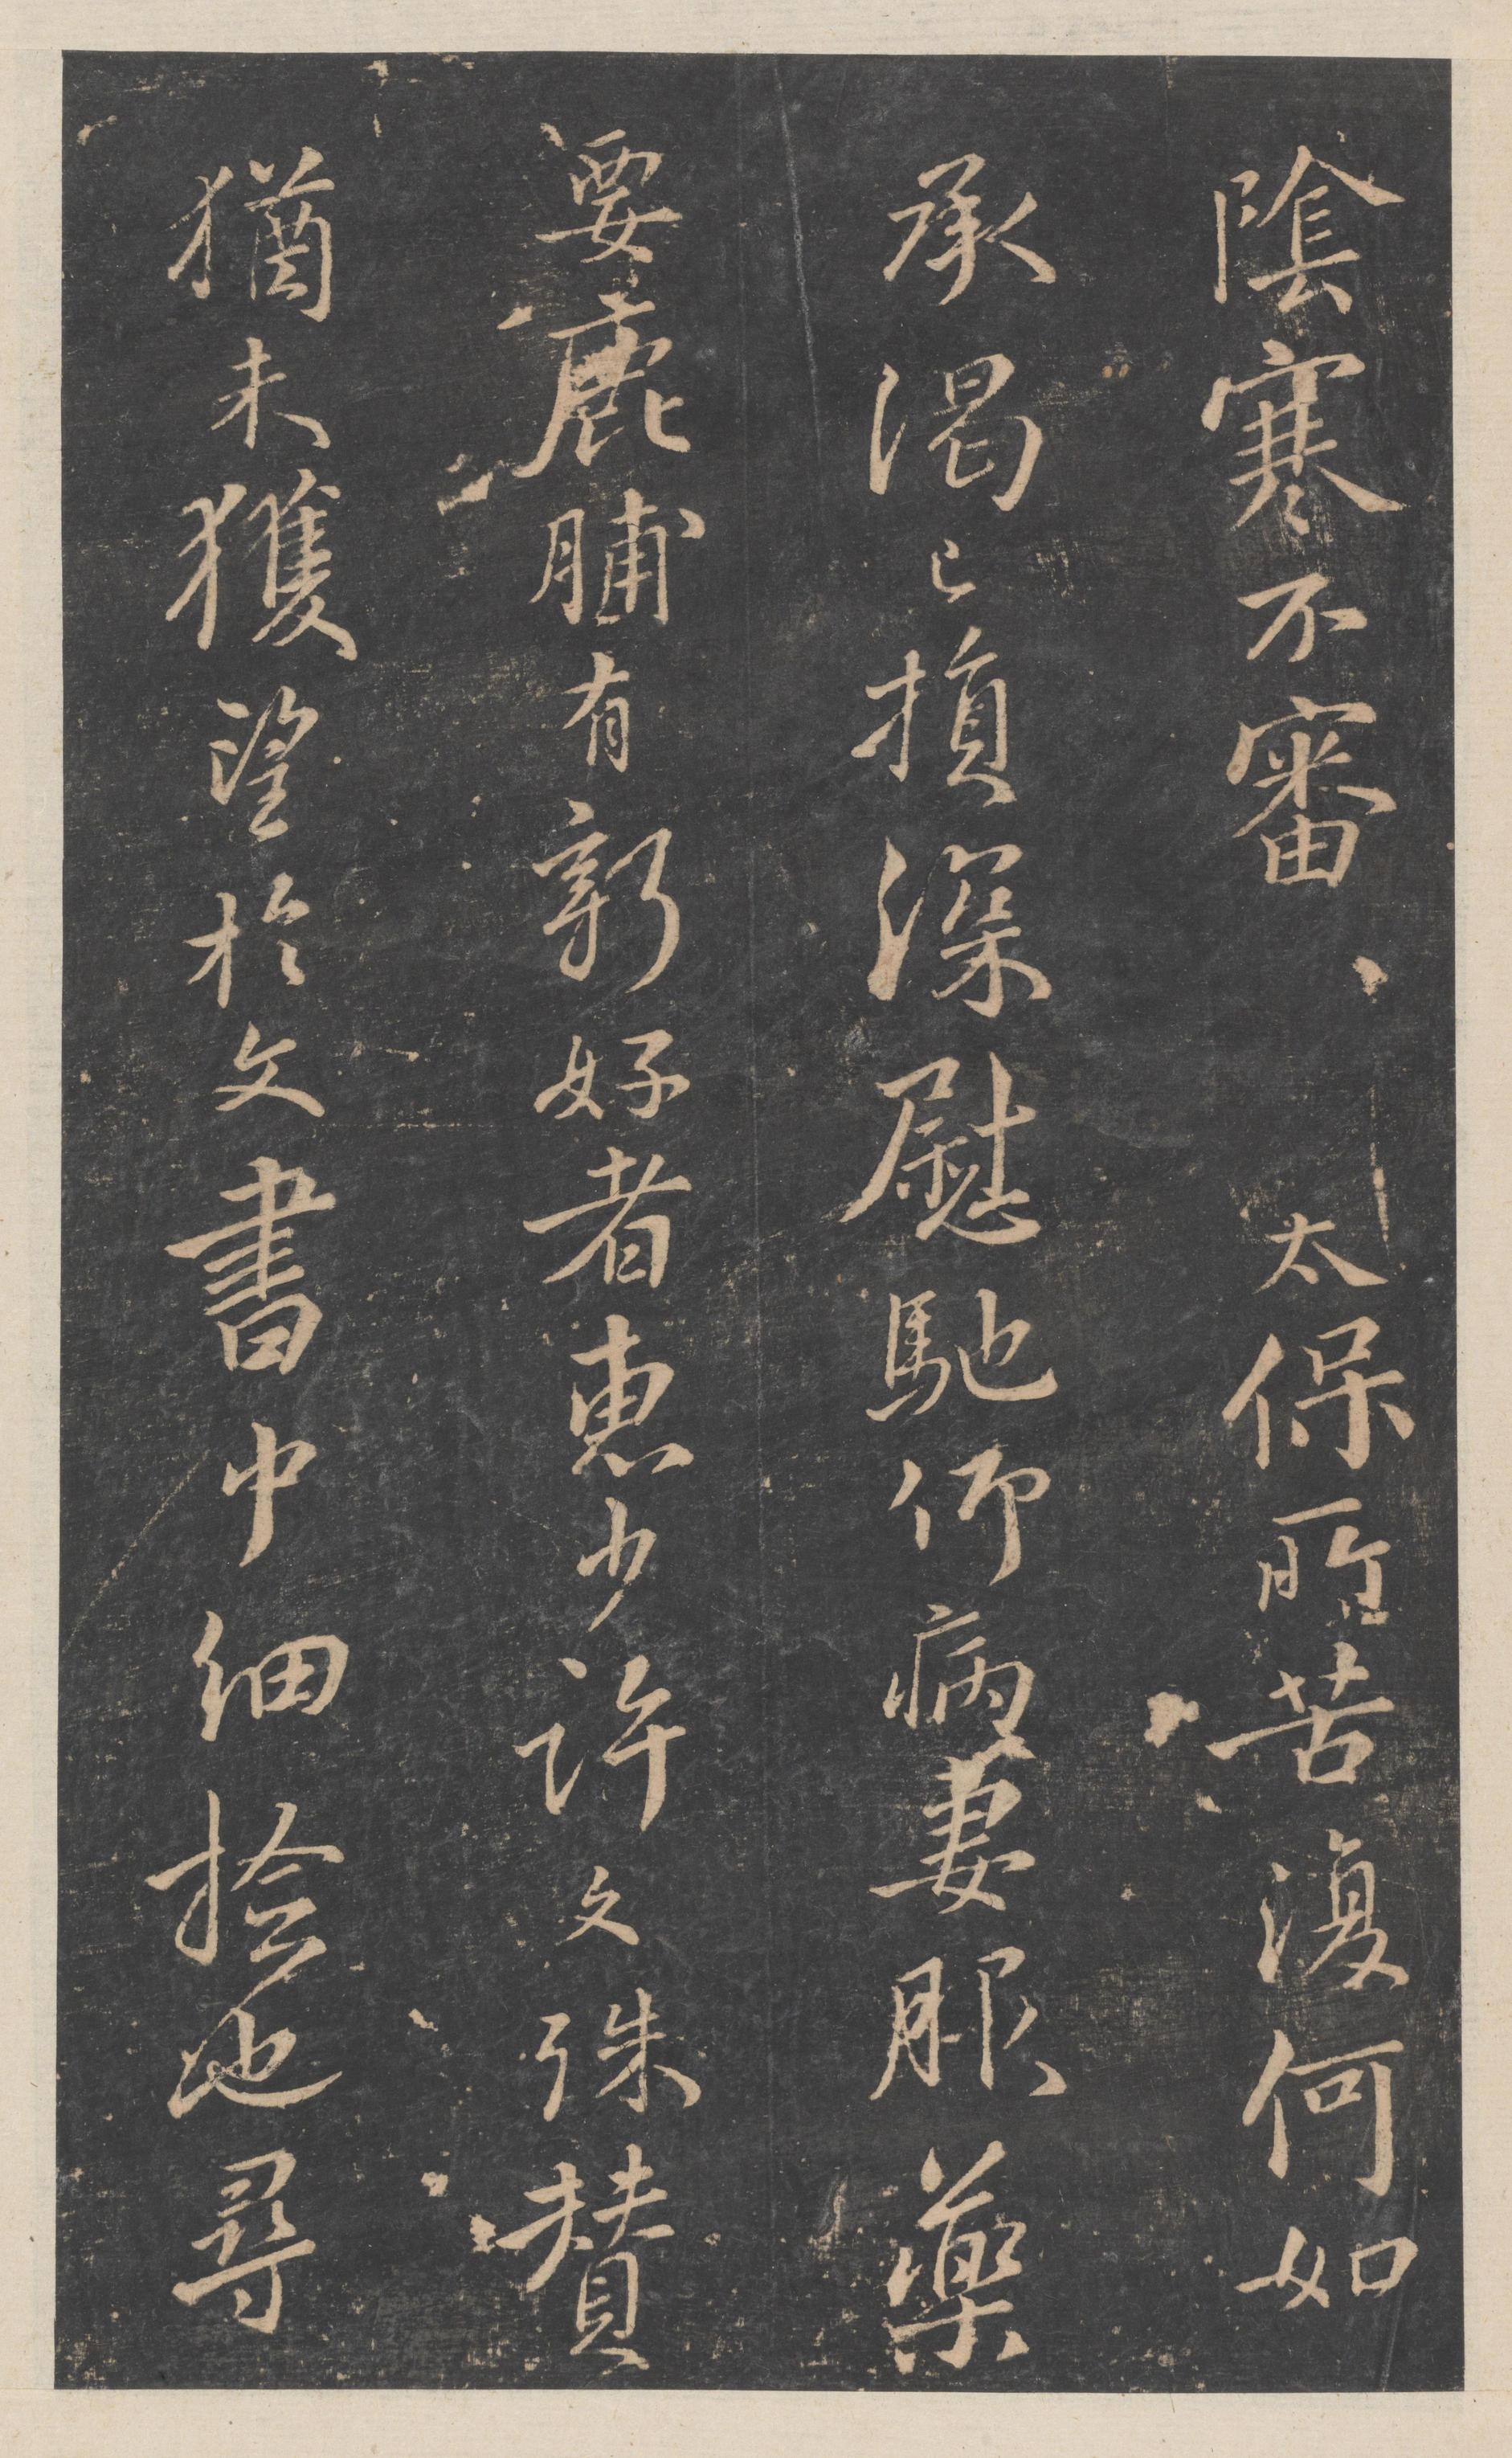 陰寒不審、太保所苦復何如
承渴已損深慰馳仰病妻服藥
要鹿脯有新好者惠少許文殊贊
猶未獲望於文書中細撿也尋